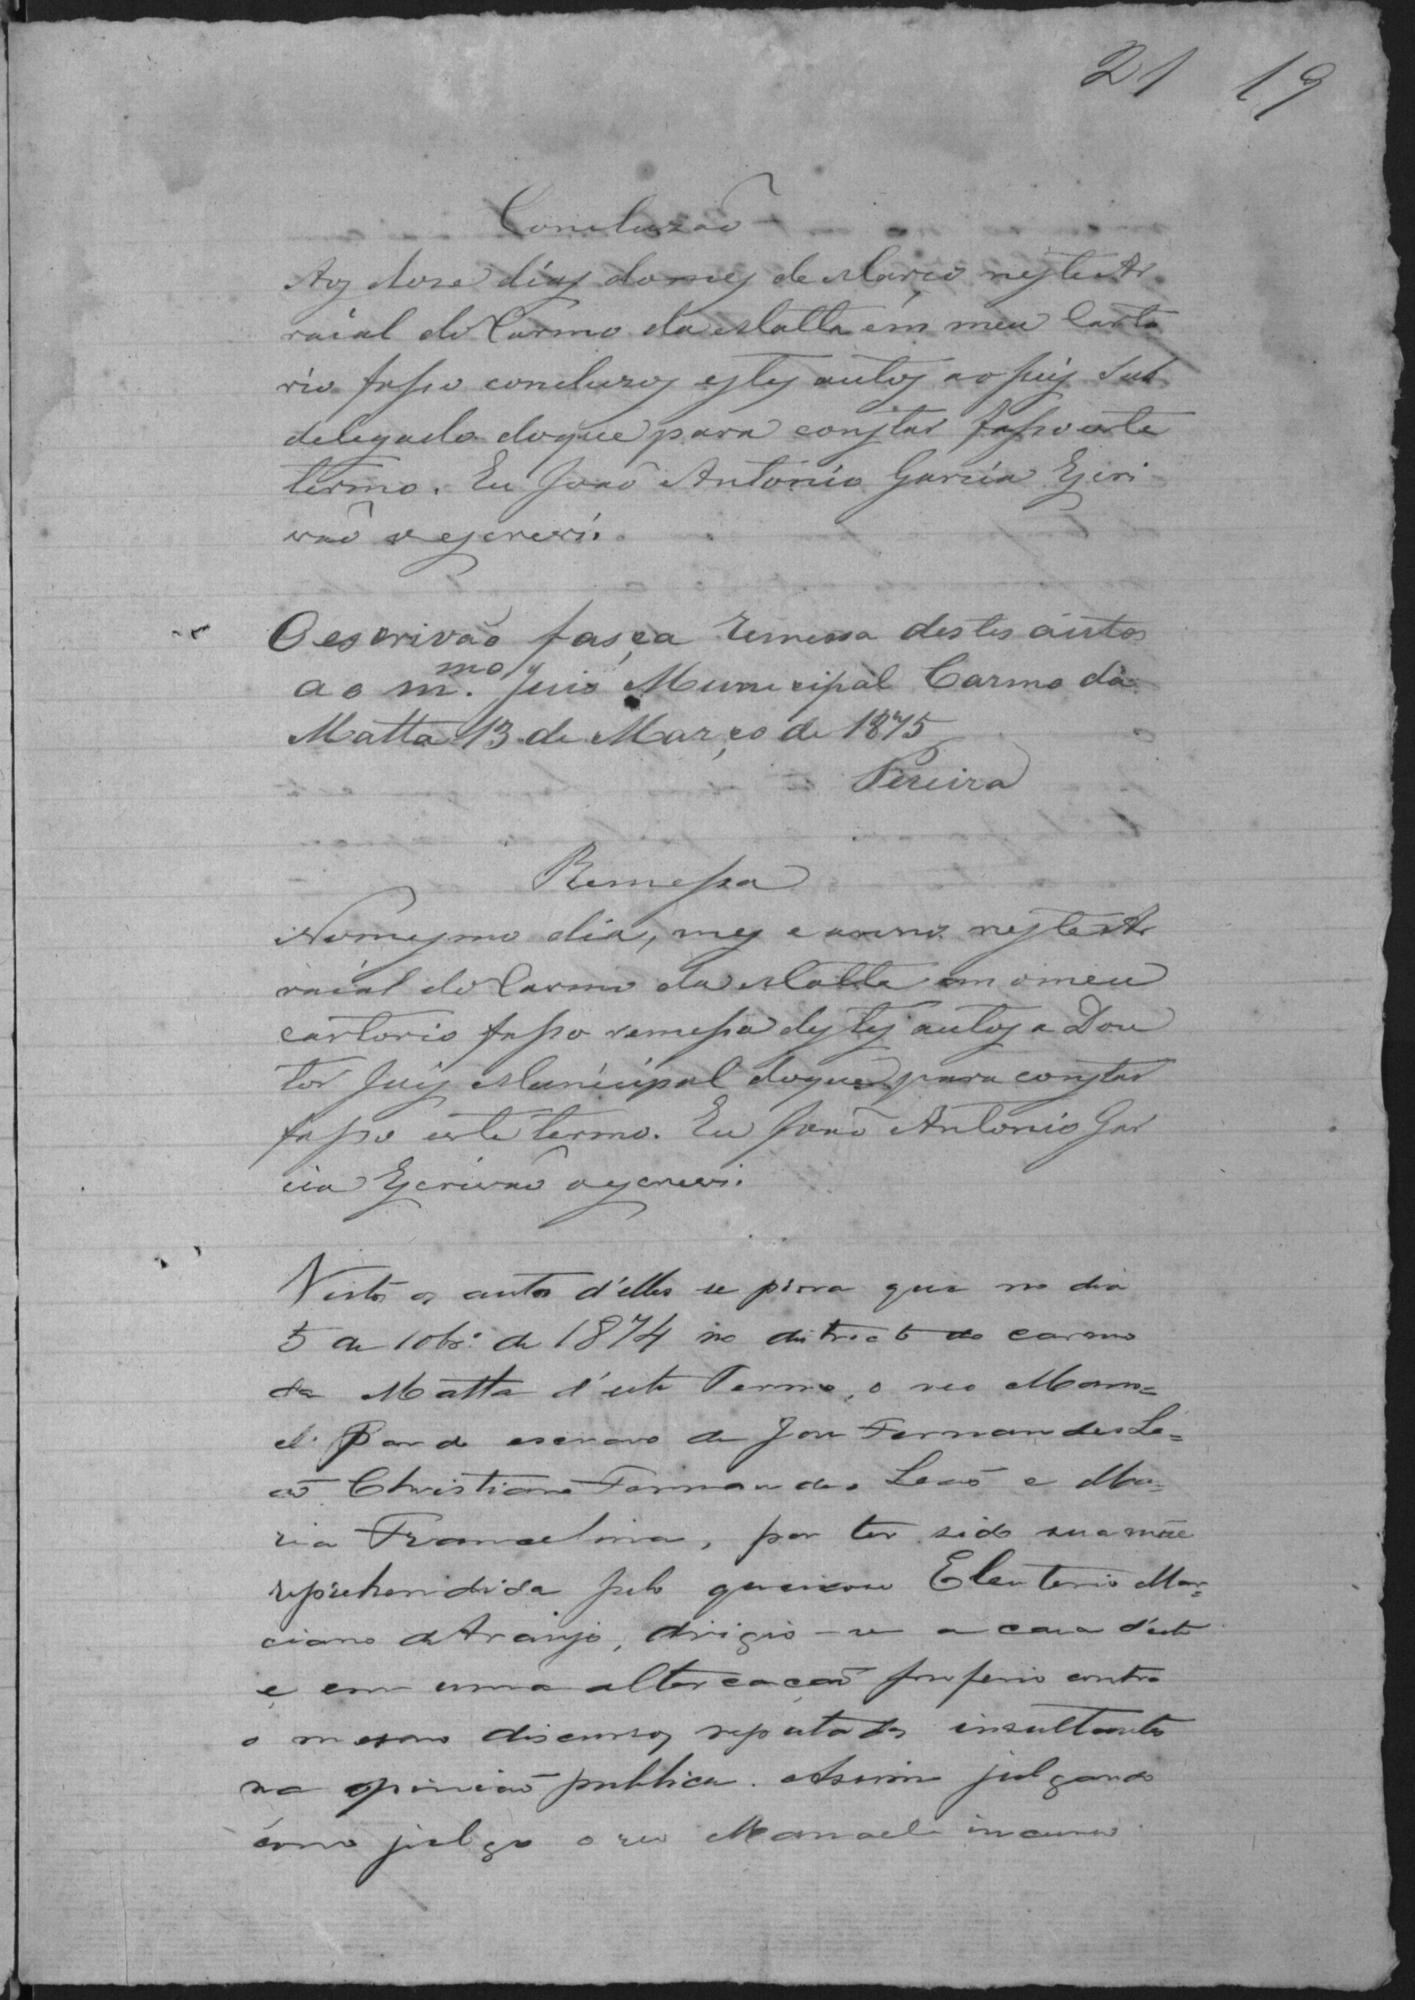 21 19
Concluzaõ
Aos dose dias do mes de Março neste Ar
raial do Carmo da Matta em meu Carto
rio fasso concluzos estes autos ao Juis Sub
delegado do que para constar fasso este
termo. Eu Joaõ Antonio Garcia Escri
vaõ o escrevi.
O escrivaõ fasça remessa destes autos
ao m.mo Juis Municipal Carmo da
Matta 13 de Março de 1875
Pereira
Remessa
No mesmo dia, mes e anno neste Ar
raial do Carmo da Matta em o meu
cartorio fasso remessa destes autos a Dou
tor Juis Municipal do que para constar
fasso este termo. Eu Joaõ Antonio Gar
cia Escrivaõ o escrevi.
Vistos os autos d'elles se prova que no dia
5 de 10br.o de 1874 no districto do Carmo
da Matta d'este Termo, o reo Mano=
el Pardo escravo de José Fernandes Le=
aõ Christiano Fernandes Leaõ e Ma=
ria Francelina, por ter sido sua mãe
reprehendida pelo queixoso Eleuterio Mar=
ciano de Araujo, dirigio-se a casa d'este
e em uma altercacaõ proferio contra
o mesmo discursos reputados insultantes
na opiniaõ publica. Assim julgando
como julgo o reu Manoel incurso